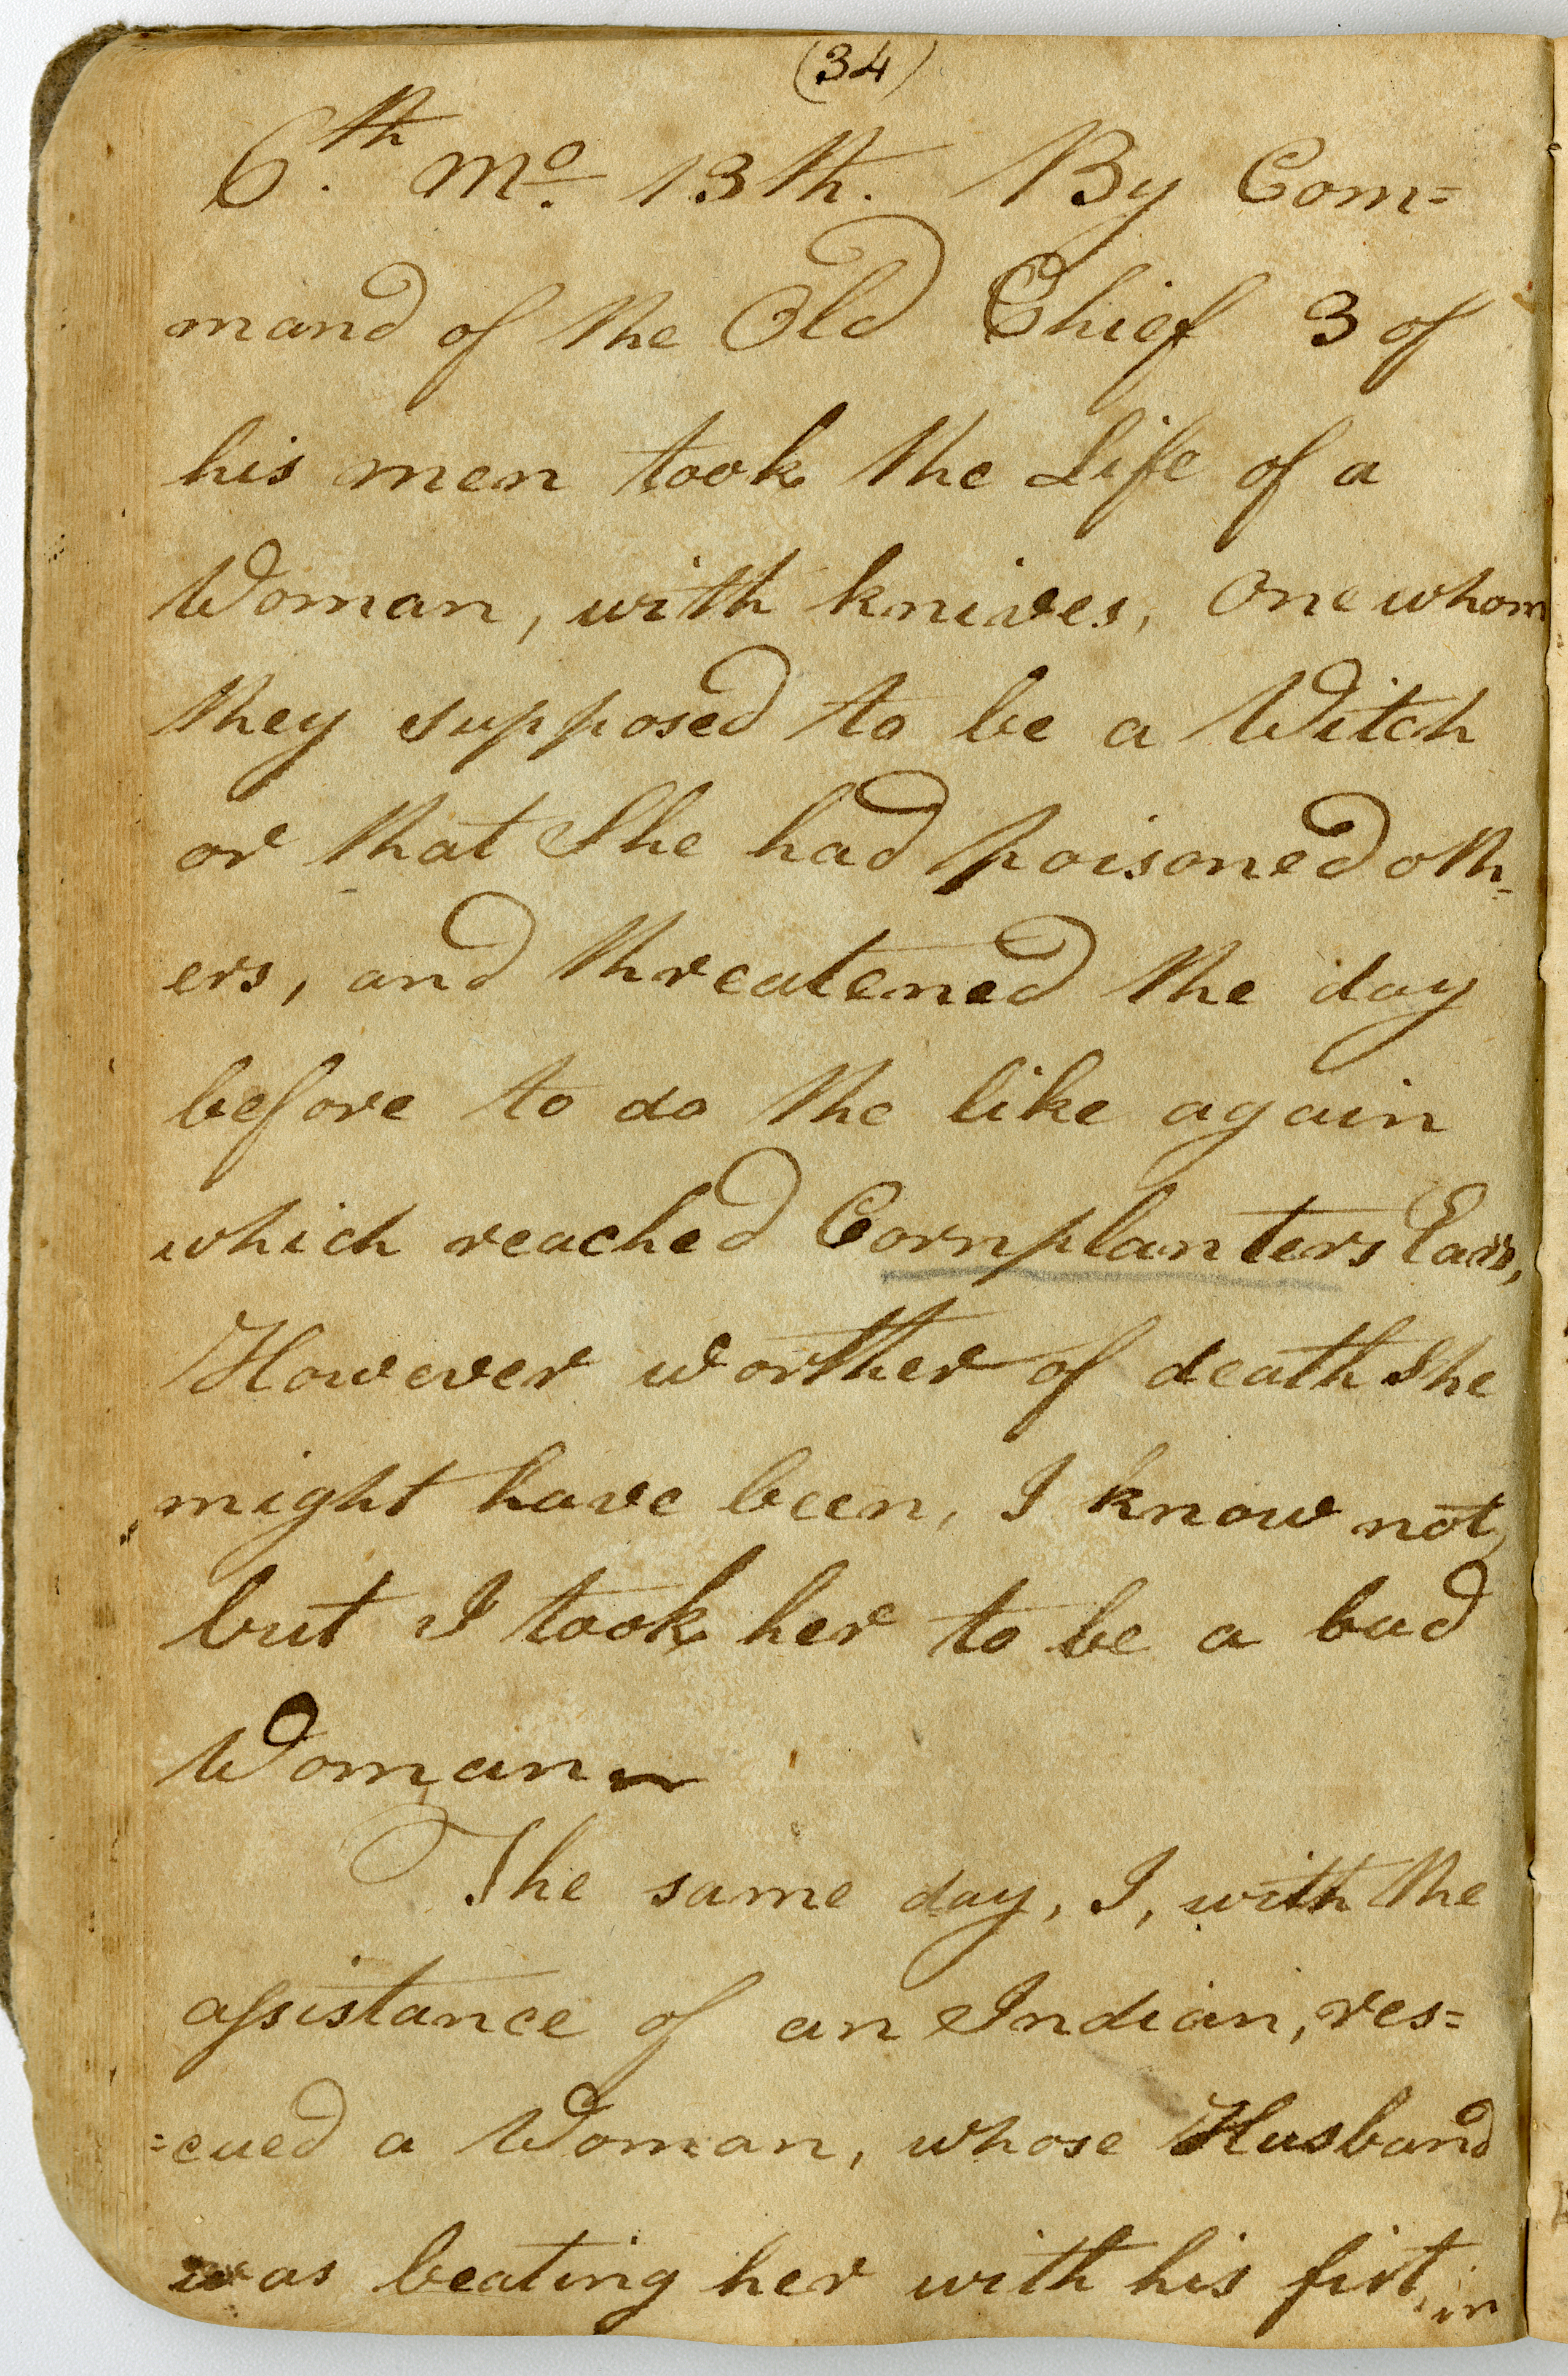 (34)
6.th mo. 13th. By Com=
mand of the Old Chief 3 of
his men took the Life of a
Woman, with knives, One whom
they supposed to be a Witch
or that She had poisoned oth=
ers, and threatened the day
before to do the like again
which reached Cornplanters Ears,
However worther of death she
might have been, I know not,
but I took her to be a bad
Woman
The same day, I, with the
assistance of an Indian, res=
=cued a Woman, whose Husband
was beating her with his fist, in